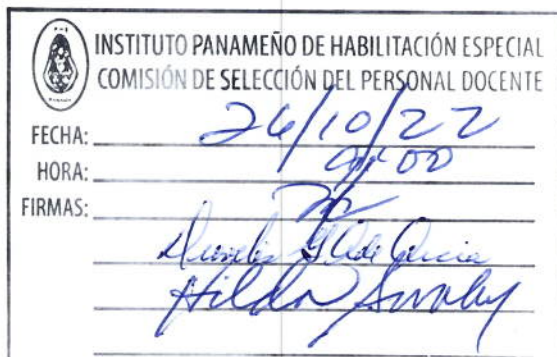 INSTITUTO PANAMEÑO DE HABILITACIÓN ESPECIAL
COMISIÓN DE SELECCIÓN DEL PERSONAL DOCENTE
FECHA: 26/10/22
HORA: 9:00
FIRMAS:
Hilda